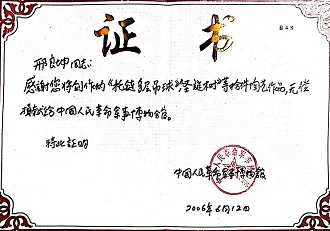 证书
邢良坤同志：
感谢您将创作的《托链多层吊球》《圣诞树》等拾件陶艺作品，无偿
捐献给中国人民革命军事博物馆。
特此证明
中国人民革命军事博物馆
2006年6月12日